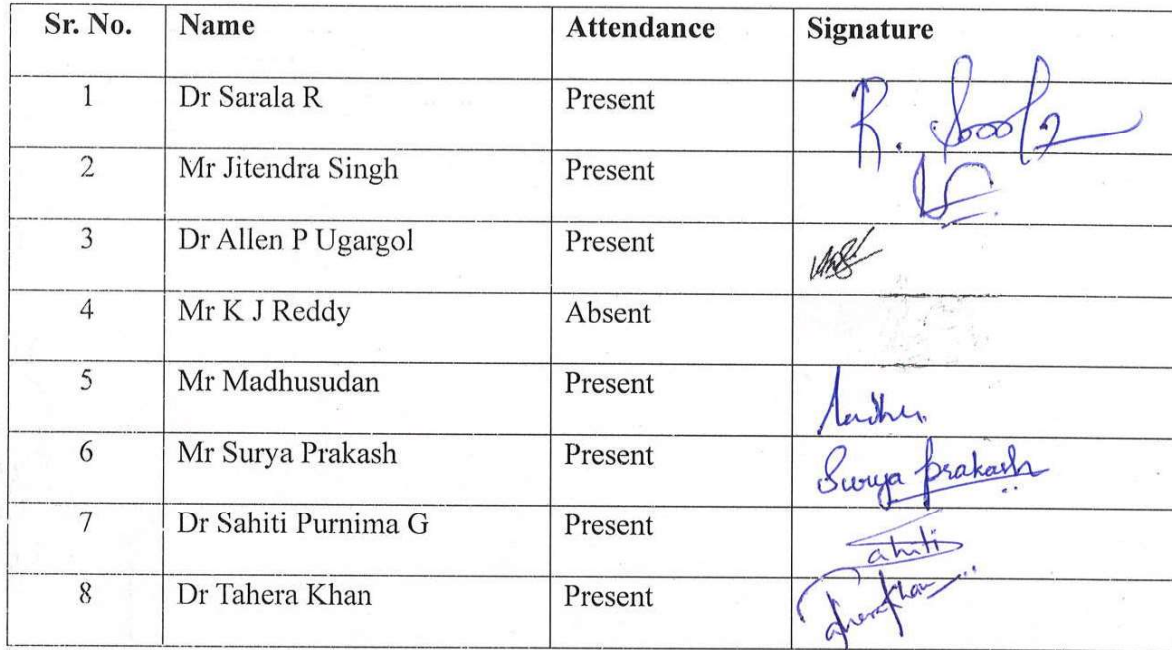 Sr. No. Name Attendance Signature
1 Dr Sarala R Present R.
2 Mr Jitendra Singh Present
3 Dr Allen P Ugargol Present
4 Mr K J Reddy Absent
5 Mr Madhusudan Present
6 Mr Surya Prakash Present Surya prakash
7 Dr Sahiti Purnima G Present Sahiti
8 Dr Tahera Khan Present